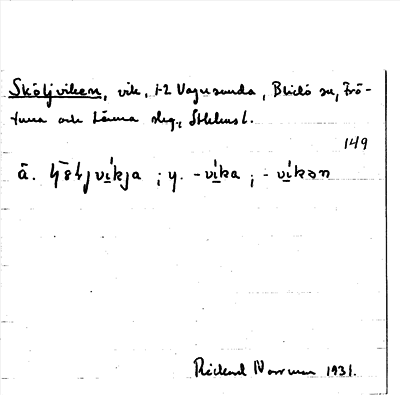 Sköljviken, vik, 1-2 Vagnsunda, Blidö sn, Frö-
tuna och Länna slg., Sthlms l.
149
ä. víkja ; y. -víka ; - víkən
Rickard Norrman 1931.